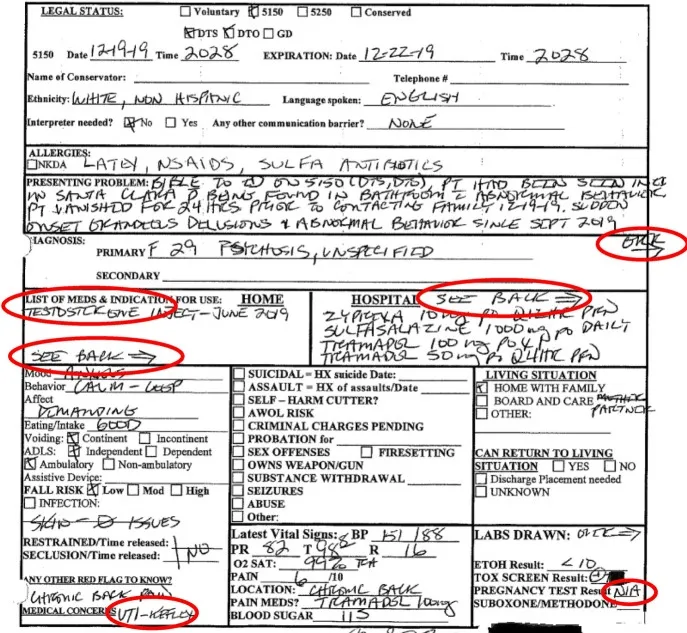 LEGAL STATUS: ☐ Voluntary ☒ 5150 ☐ 5250 ☐ Conserved
☒ DTS ☒ DTO ☐ GD
5150 Date 12-19-19 Time 2028 EXPIRATION: Date 12-22-19 Time 2028
Name of Conservator: Telephone #
Ethnicity: WHITE, NON HISPANIC Language spoken: ENGLISH
Interpreter needed? ☒ No ☐ Yes Any other communication barrier? NONE
ALLERGIES:
☐ NKDA LATEX, NSAIDS, SULFA ANTIBIOTICS
PRESENTING PROBLEM: TO ED ON 5150 (DTS, DTO), PT HAD BEEN SEEN IN
IN SANTA CLARA BEING FOUND IN BATHROOM ABNORMAL BEHAVIOR
PT VANISHED FOR 24 HRS PRIOR TO CONTACTING FAMILY 12-19-19. SUDDEN
ONSET GRANDEOUS DELUSIONS & ABNORMAL BEHAVIOR SINCE SEPT 2019
DIAGNOSIS: BACK →
PRIMARY F 29 PSYCHOSIS, UNSPECIFIED
SECONDARY
LIST OF MEDS & INDICATION FOR USE: HOME HOSPITAL SEE BACK ⇒
TESTOSTERONE INJECT – JUNE 2019
SEE BACK ⇒
ZYPREXA 10 mg PO Q12HR PRN
SULFASALAZINE 1000 mg PO DAILY
TRAMADOL 100 mg PO
TRAMADOL 50 mg PO Q4HR PRN
Mood
Behavior CALM – COOP
Affect
DEMANDING
Eating/Intake GOOD
Voiding: ☒ Continent ☐ Incontinent
ADLS: ☒ Independent ☐ Dependent
☒ Ambulatory ☐ Non-ambulatory
Assistive Device:
FALL RISK ☒ Low ☐ Mod ☐ High
☐ INFECTION:
SKIN – Ø ISSUES
RESTRAINED/Time released:
SECLUSION/Time released: NO
ANY OTHER RED FLAG TO KNOW?
CHRONIC BACK PAIN
MEDICAL CONCERNS UTI-KEFLEX
☐ SUICIDAL = HX suicide Date:
☐ ASSAULT = HX of assaults/Date
☐ SELF – HARM CUTTER?
☐ AWOL RISK
☐ CRIMINAL CHARGES PENDING
☐ PROBATION for
☐ SEX OFFENSES ☐ FIRESETTING
☐ OWNS WEAPON/GUN
☐ SUBSTANCE WITHDRAWAL
☐ SEIZURES
☐ ABUSE
☐ Other:
Latest Vital Signs: BP 151/88
PR 82 T 98.2 R 16
O2 SAT: 99%
PAIN 6 /10
LOCATION: CHRONIC BACK
PAIN MEDS? TRAMADOL 100mg
BLOOD SUGAR 115
LIVING SITUATION
☒ HOME WITH FAMILY
☐ BOARD AND CARE
☐ OTHER: PARTNER
CAN RETURN TO LIVING
SITUATION ☐ YES ☐ NO
☐ Discharge Placement needed
☐ UNKNOWN
LABS DRAWN: →
ETOH Result: < 10
TOX SCREEN Result:
PREGNANCY TEST Result N/A
SUBOXONE/METHODONE